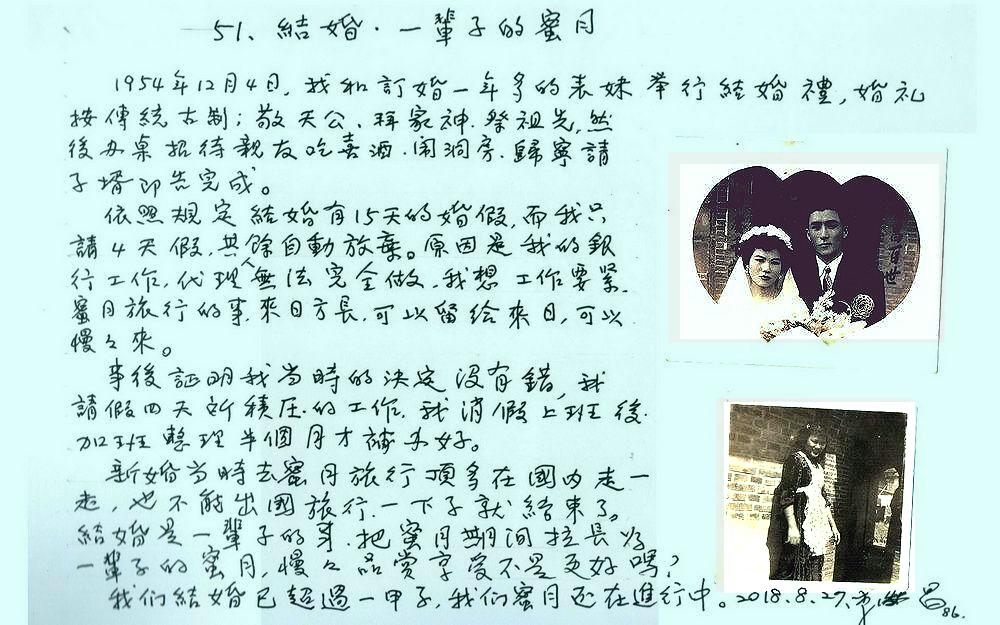 51、結婚·一輩子的蜜月
1954年12月4日,我和訂婚一年多的表妹举行結婚禮,婚礼
按傳統古制;敬天公、拜家神.祭祖先,然
後办桌招待親友吃喜酒.闹洞房.歸寧請
子壻即告完成。
依照規定結婚有15天的婚假,而我只
請4天假,其餘自動放棄。原因是我的銀
行工作,代理人無法完全做,我想工作要緊.
蜜月旅行的事,來日方長,可以留给來日,可以
慢々來。
事後証明我当時的決定没有錯,我
請假四天所積压的工作,我消假上班後.
加班整理半個月才補办好。
新婚当時去蜜月旅行頂多在國内走一
走,也不能出國旅行.一下子就結束了。
結婚是一輩子的事.把蜜月期间拉長为
一輩子的蜜月,慢々品赏享受不是更好嗎?
我们結婚已超過一甲子,我们蜜月还在進行中。2018.8.27.
86.
百世